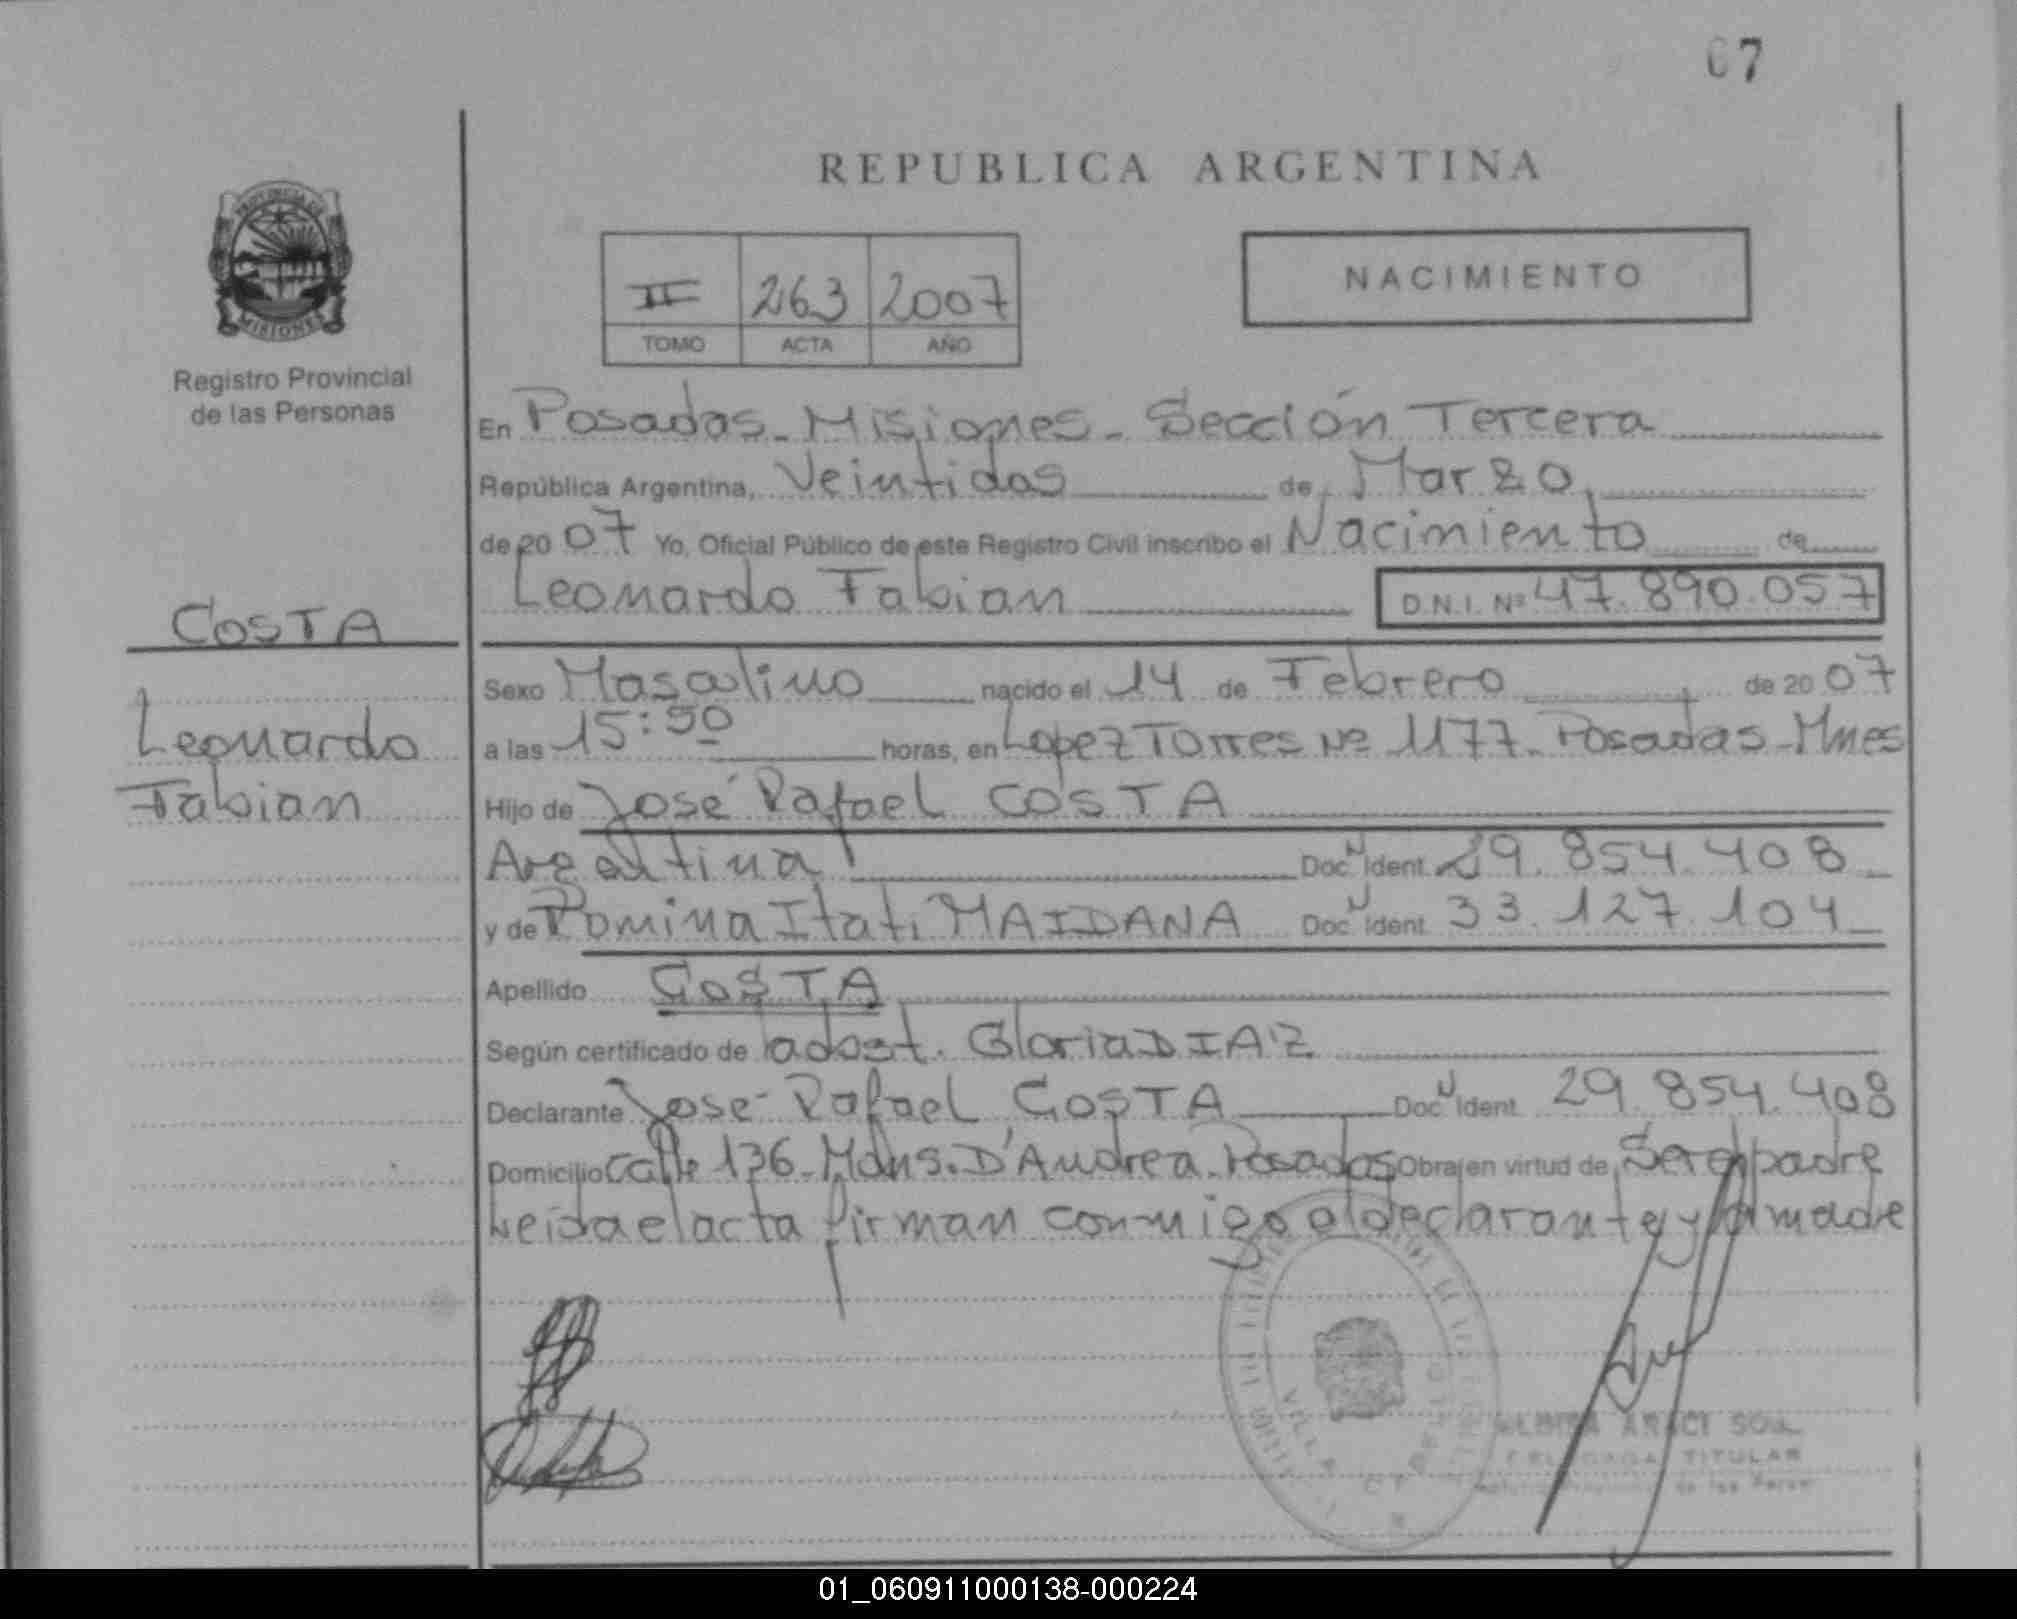 67
REPUBLICA ARGENTINA
PROVINCIA DE
MISIONES
Registro Provincial
de las Personas
II 263 2007
TOMO ACTA AÑO
NACIMIENTO
En Posadas - Misiones - Sección Tercera
República Argentina, Veintidos de Marzo
de 2007 Yo, Oficial Público de este Registro Civil inscribo el Nacimiento de
Leonardo Fabian D.N.I. Nº 47.890.057
COSTA
Leonardo
Fabian
Sexo Masculino nacido el 14 de Febrero de 2007
a las 15:50 horas, en Lopez Torres Nº 1177 - Posadas - Mnes
Hijo de José Rafael COSTA
Argentina Doc N Ident. 29.854.408
y de Romina Itati MAIDANA Doc N Ident. 33.127.104
Apellido COSTA
Según certificado de Gloria DIAZ
Declarante José Rafael COSTA Doc N Ident 29.854.408
Domicilio Calle 136 - D'Andrea - Posadas Obra en virtud de Ser el padre
Leída el acta firman conmigo el declarante y la madre
VILLA CABELLO
ARACI
TITULAR
de las
01_060911000138-000224